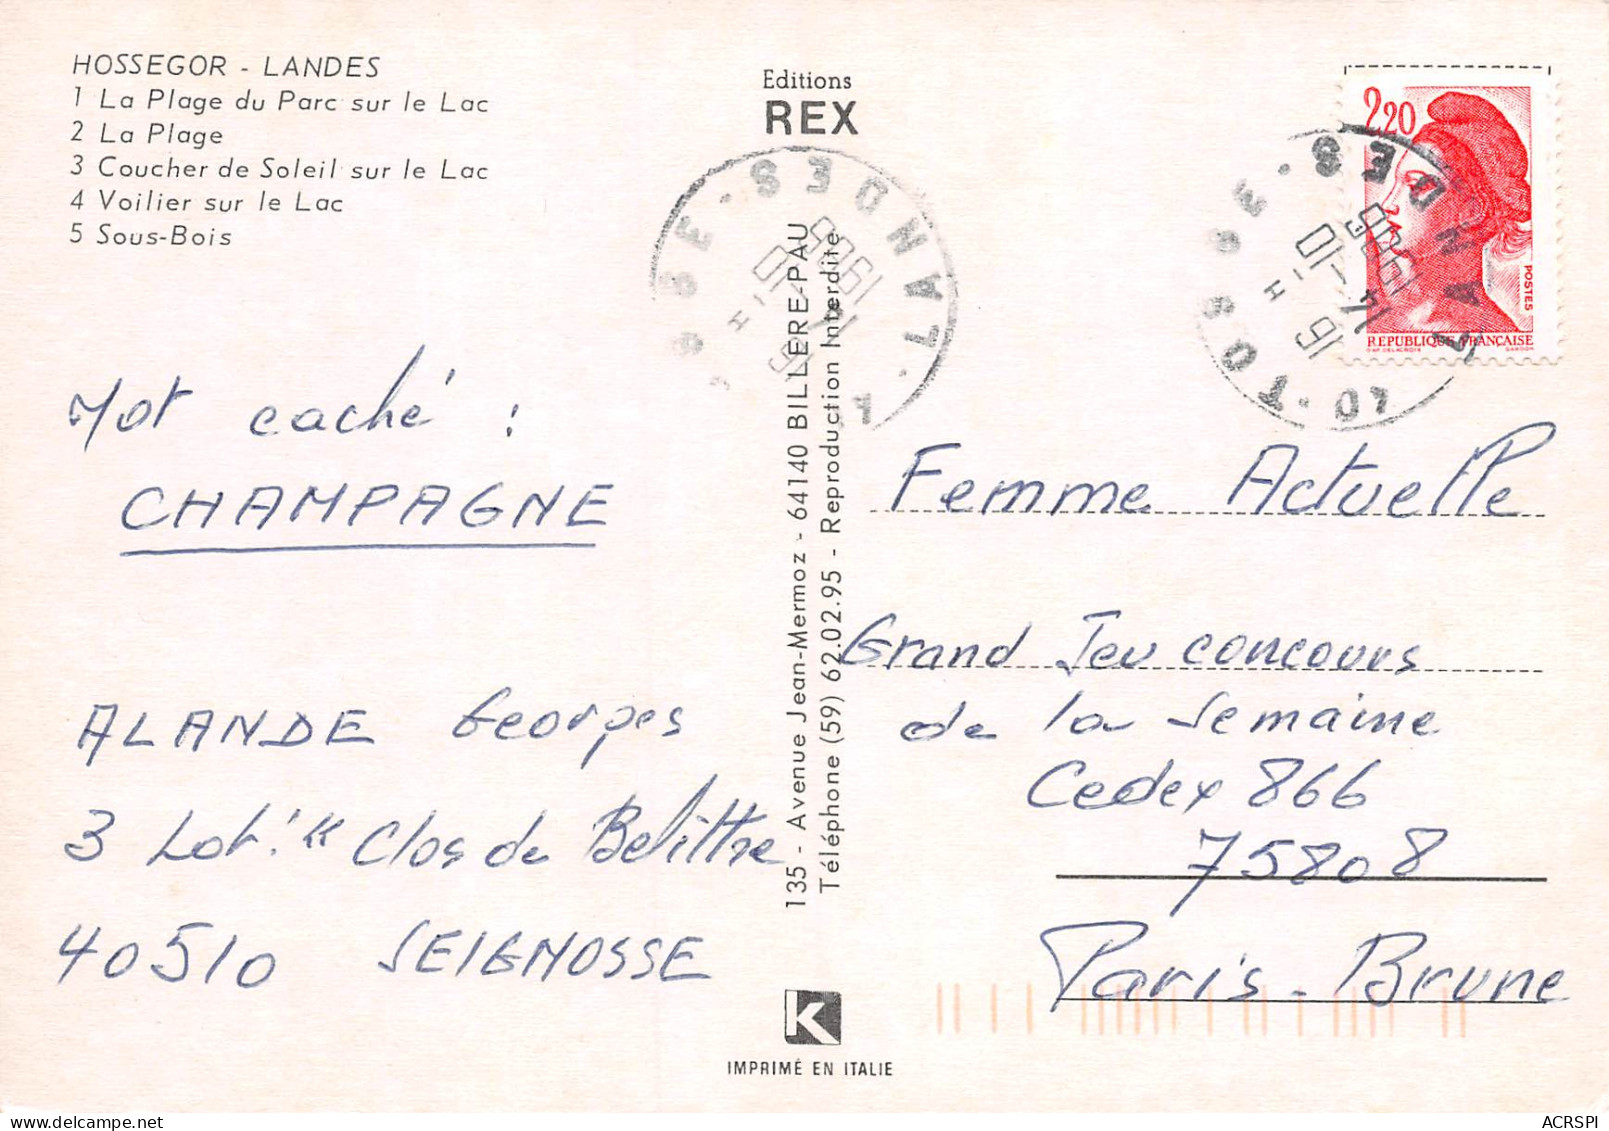 HOSSEGOR - LANDES
1 La Plage du Parc sur le Lac
2 La Plage
3 Coucher de Soleil sur le Lac
4 Voilier sur le Lac
5 Sous-Bois
Editions
REX
135 - Avenue Jean-Mermoz - 64140 BILLERE-PAU
Téléphone (59) 62.02.95 - Reproduction Interdite
2,20
POSTES
REPUBLIQUE FRANÇAISE
LANDES
LANDES
40·TOSSE
Mot caché :
CHAMPAGNE
ALANDE Georges
3 Lot. " Clos de Belittre
40510 SEIGNOSSE
Femme Actuelle
Grand Jeu concours
de la Semaine
Cedex 866
75808
Paris-Brune
K
IMPRIMÉ EN ITALIE
ACRSPI